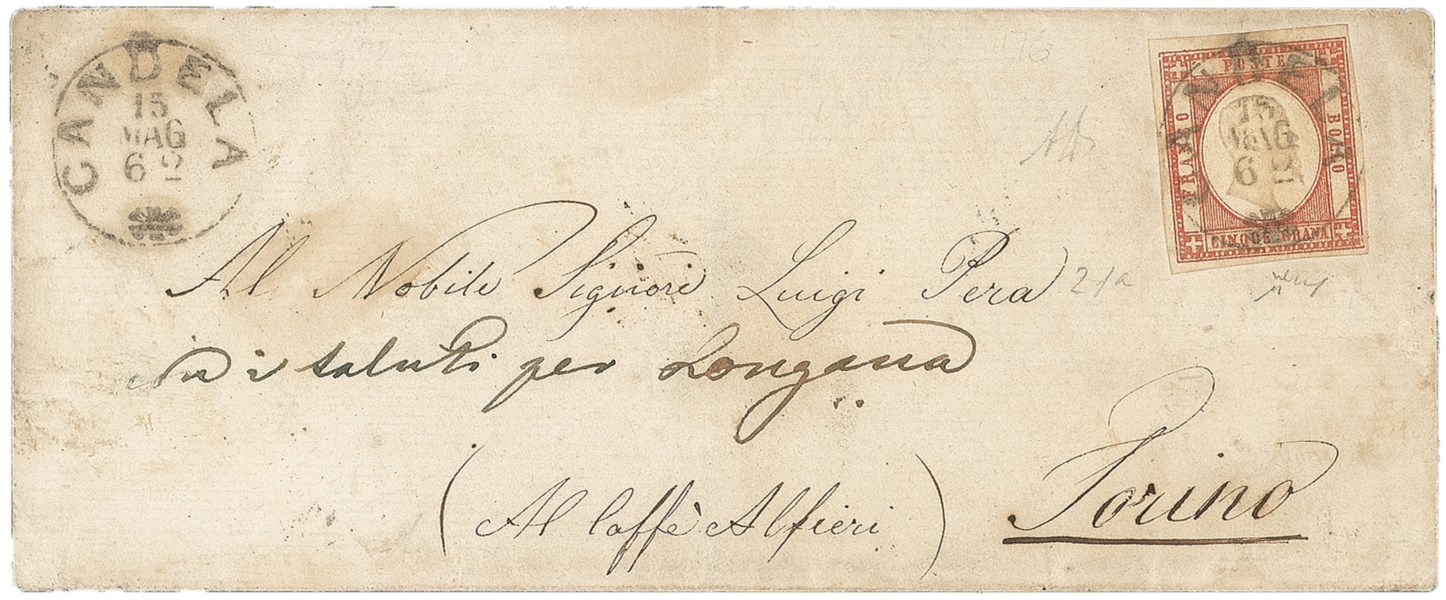 CANDELA
15
MAG
62
POSTE
FRANCO
BOLLO
CINQUE GRANA
CANDELA
15
MAG
62
Al Nobile Signore Luigi Pera
21a
con i saluti per Longana
(Al Caffè Alfieri)
Torino